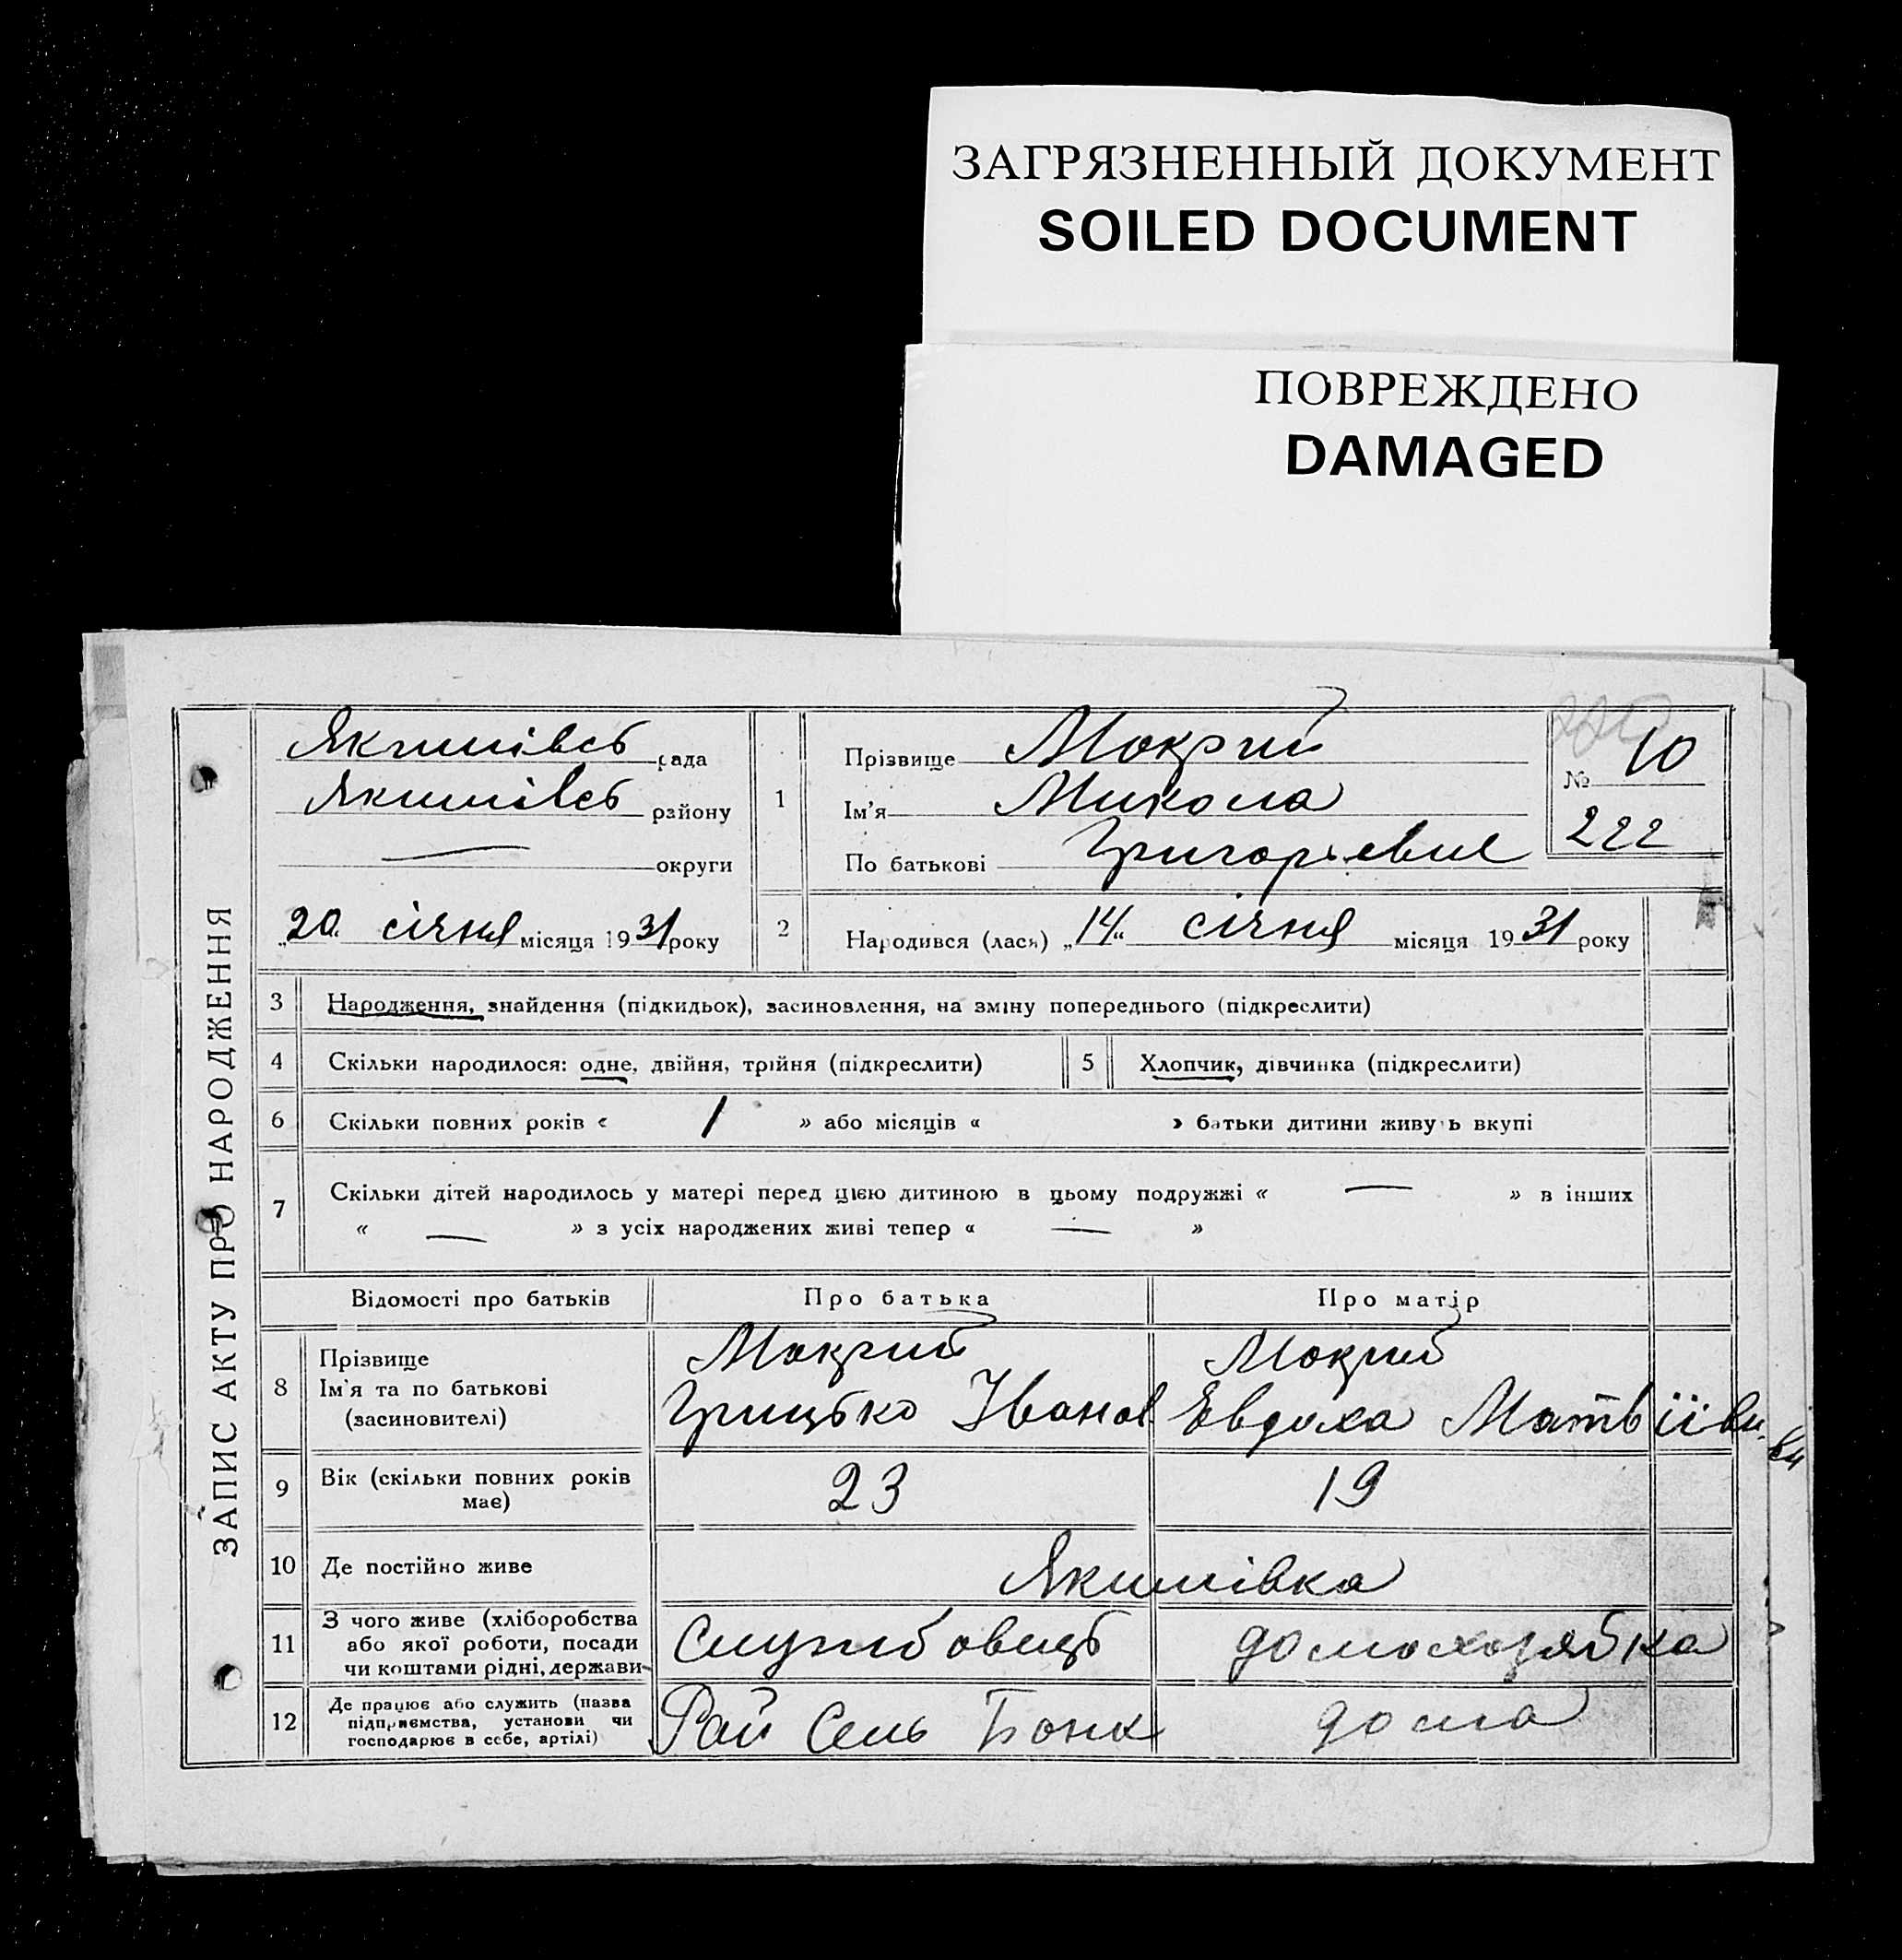 ЗАГРЯЗНЕННЫЙ ДОКУМЕНТ
SOILED DOCUMENT
ПОВРЕЖДЕНО
DAMAGED
ЗАПИС АКТУ ПРО НАРОДЖЕННЯ
Якимівсь рада
Якимівсь району
— округи
„20 січня місяця 1931 року
1 Прізвище Мокрий
Ім'я Микола
По батькові Григорієвич
№ 10
222
2 Народився (лася) „14“ січня місяця 1931 року
3 Народження, знайдення (підкидьок), засиновлення, на зміну попереднього (підкреслити)
4 Скільки народилося: одне, двійня, трійня (підкреслити)
5 Хлопчик, дівчинка (підкреслити)
6 Скільки повних років « 1 » або місяців « » батьки дитини живуть вкупі
7 Скільки дітей народилось у матері перед цією дитиною в цьому подружжі « — » в інших
« — » з усіх народжених живі тепер « — »
Відомості про батьків Про батька Про матір
8 Прізвище Мокрий Мокрий
Ім'я та по батькові Грицько Іванов Евдоха Матвіївн
(засиновителі)
9 Вік (скільки повних років має) 23 19
10 Де постійно живе Якимівка
11 З чого живе (хліборобства
або якої роботи, посади
чи коштами рідні, держави- Службовець домохозяйка
12 Де працює або служить (назва
підприємства, установи чи
господарює в себе, артілі) Рай Сель Банк дома